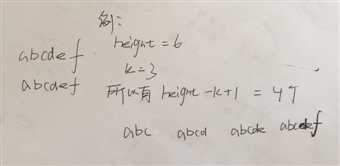 例:
height = 6
k = 3
abcdef
abcdef
所以有 height - k + 1 = 4个
abc abcd abcde abcdef